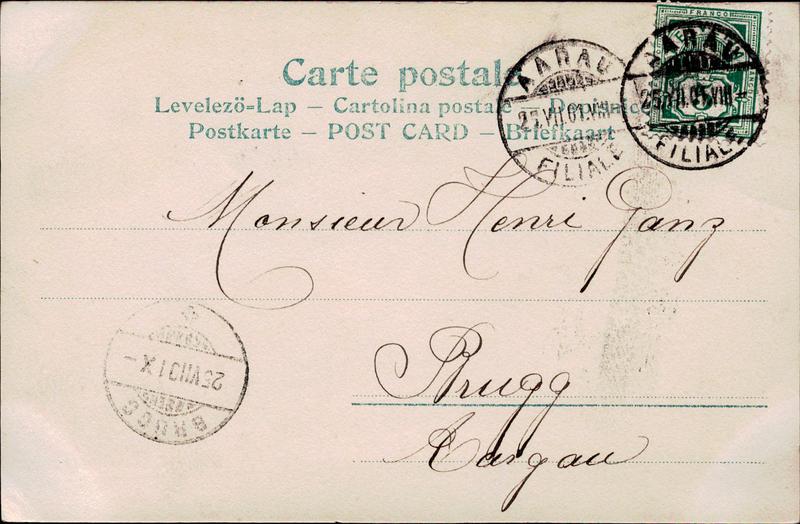 FRANCO
Carte postale
Levelező-Lap – Cartolina postale –
Postkarte – POST CARD – Briefkaart
AARAU
25.VII.01.VIII–
FILIALE
AARAU
25.VII.01.VIII–
FILIALE
Monsieur Henri Ganz
25.VII.01.X–
BRUGG
Brugg
Aargau